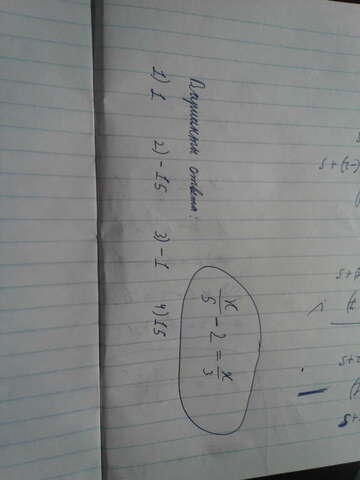 x/5 - 2 = x/3
Варианты ответа:
1) 1 2) -15 3) -1 4) 15